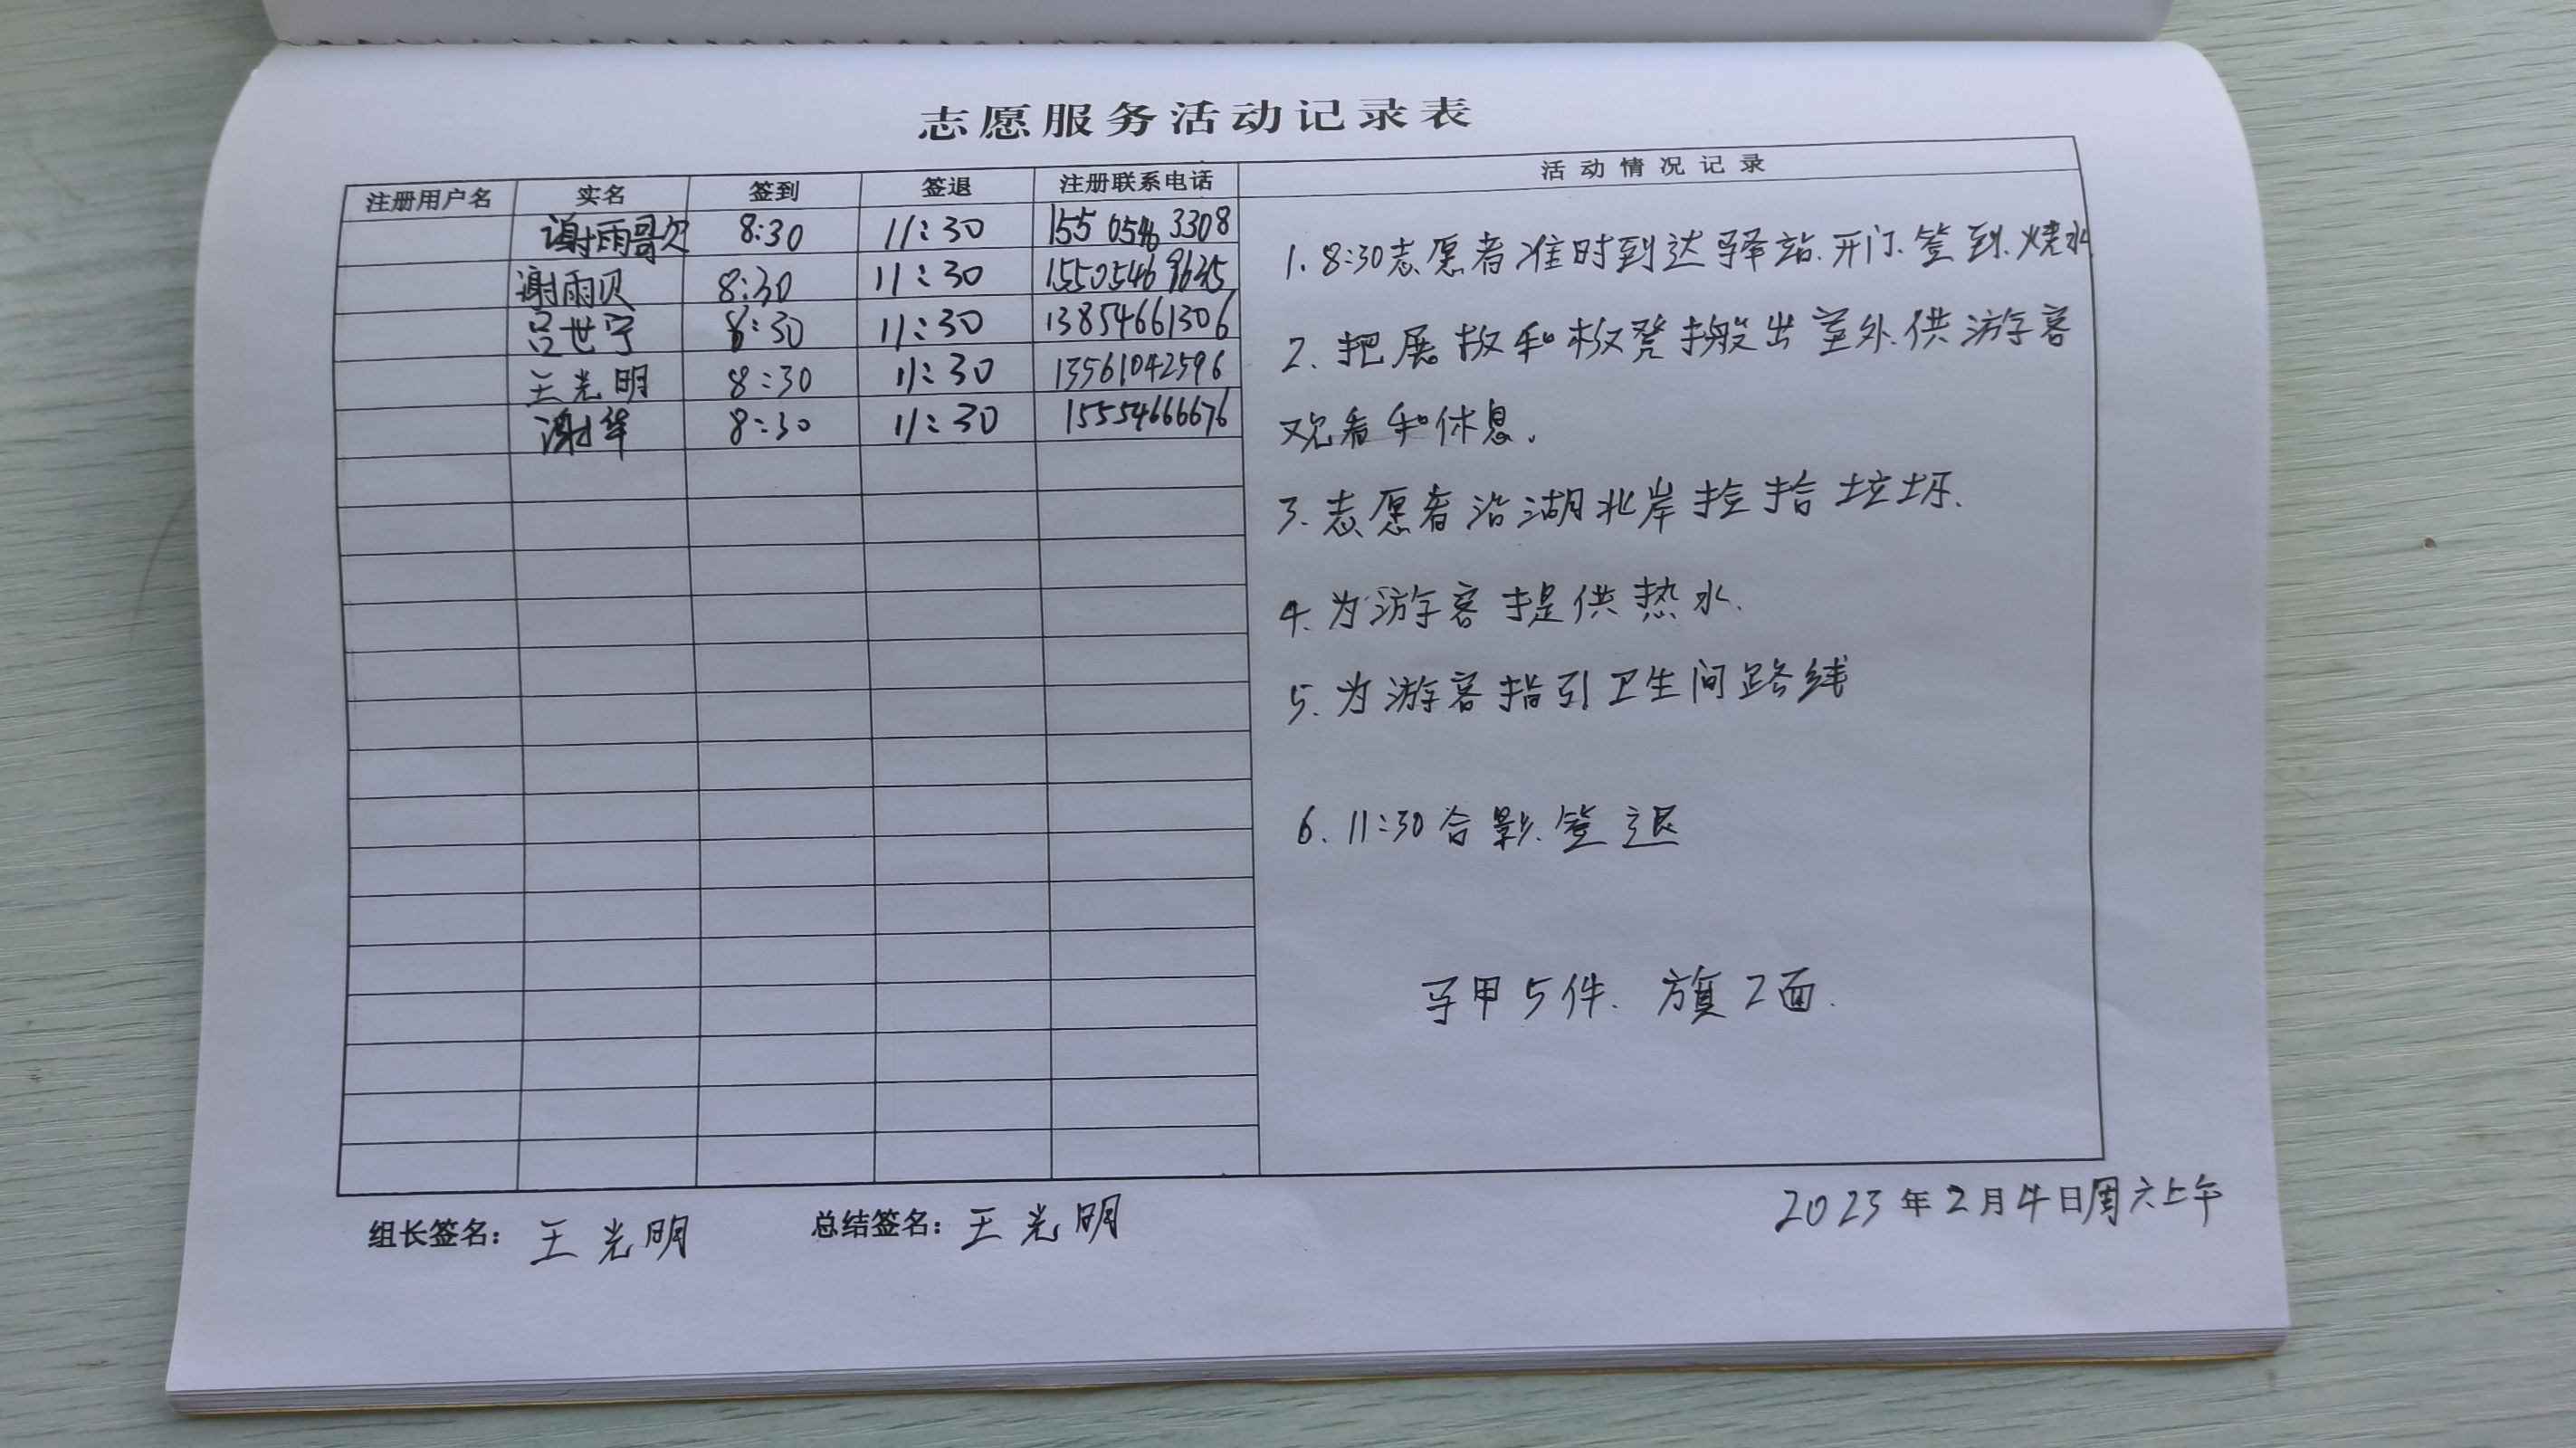 志愿服务活动记录表
注册用户名 实名 签到 签退 注册联系电话 活动情况记录
谢雨歌 8:30 11:30 155 0546 3308
谢雨贝 8:30 11:30 15505469635
吕世宁 8:30 11:30 13854661306
王光明 8:30 11:30 13561042596
谢华 8:30 11:30 15554666676
1. 8:30志愿者准时到达驿站.开门.签到.烧水
2. 把展板和板凳搬出室外.供游客
观看和休息。
3. 志愿者沿湖北岸捡拾垃圾.
4. 为游客提供热水.
5. 为游客指引卫生间路线
6. 11:30合影.签退
马甲5件. 旗2面.
组长签名: 王光明 总结签名: 王光明 2023年2月4日周六上午